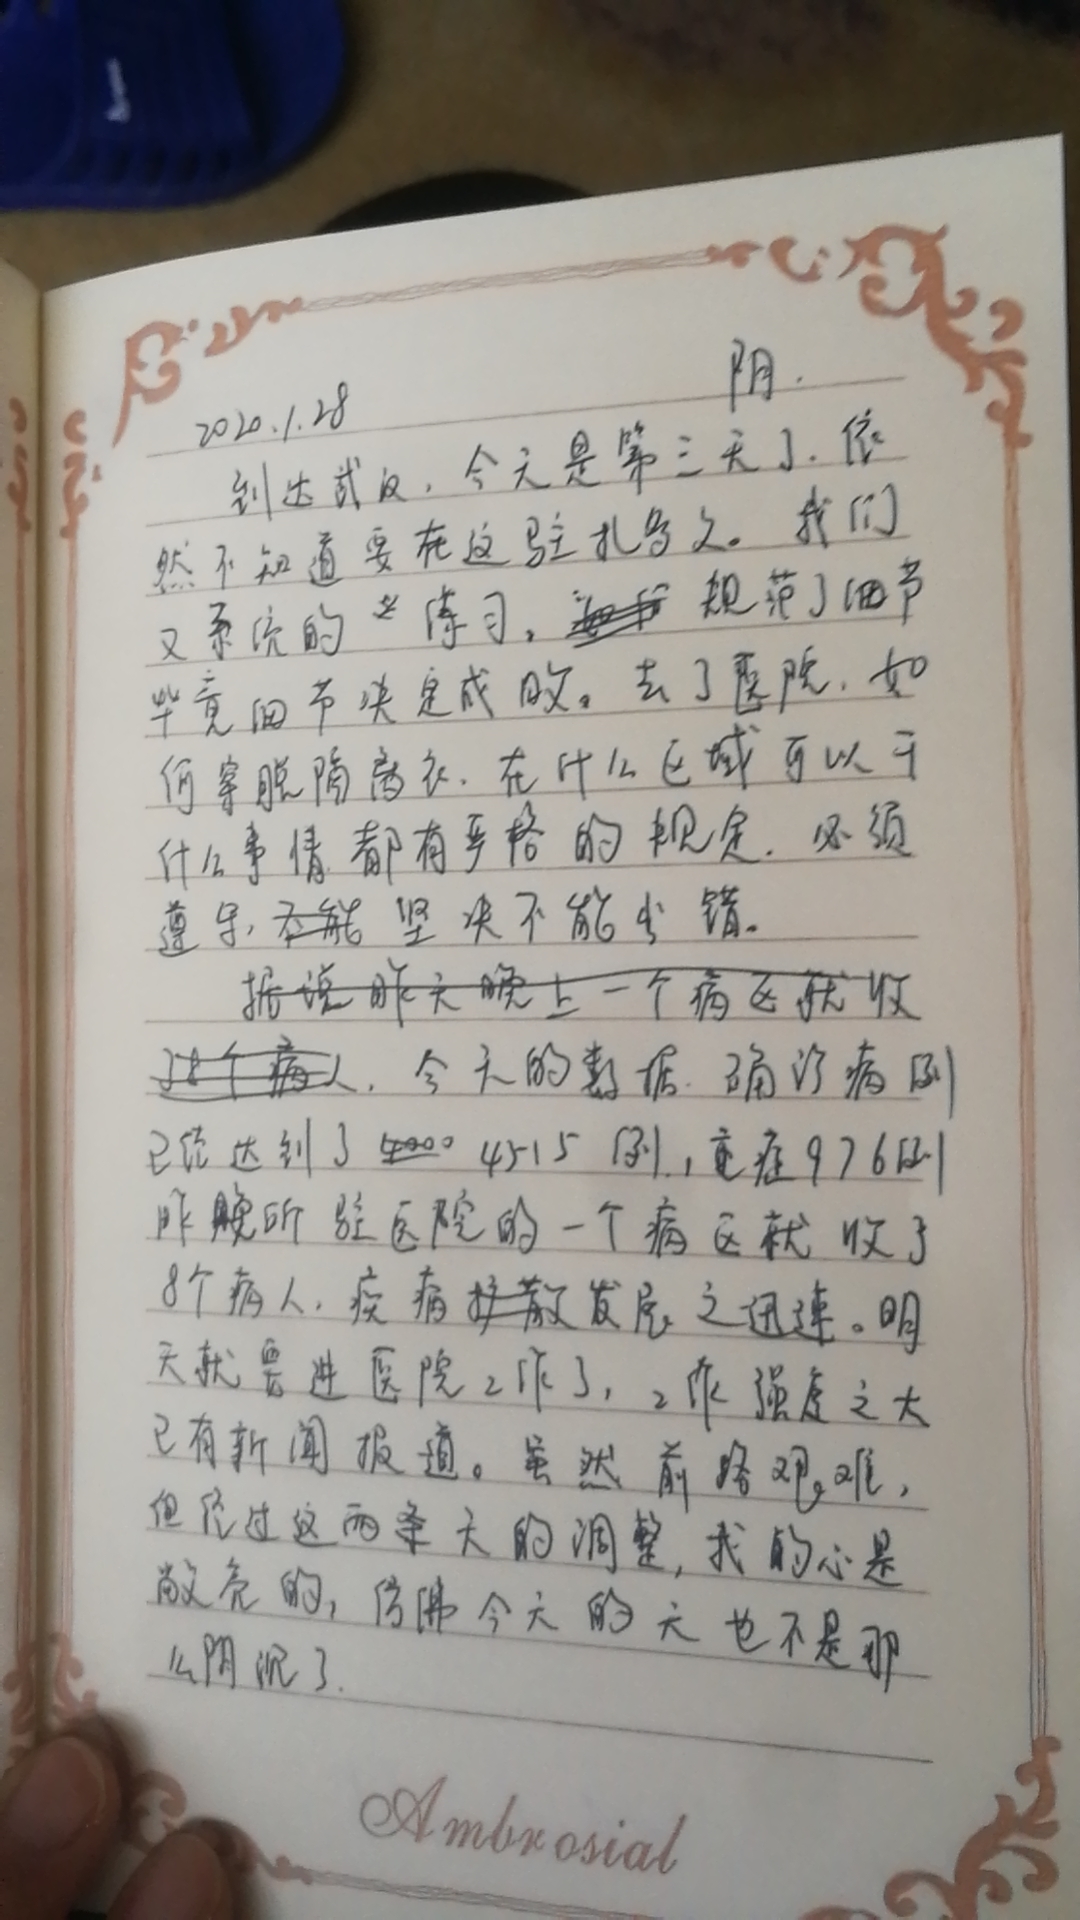 2020.1.28 阴.
到达武汉，今天是第三天了.依
然不知道要在这驻扎多久。我们
又系统的 练习， 规范了细节
毕竟细节决定成败。去了医院，如
何穿脱隔离衣.在什么区域可以干
什么事情都有严格的规定.必须
遵守,不能坚决不能出错。
据说昨天晚上一个病区就收
了8个病人.今天的数据.确诊病例
已经达到了4000 4515例,重症976例
昨晚所驻医院的一个病区就收了
8个病人.疾病扩散发展之迅速。明
天就要进医院工作了,工作强度之大
已有新闻报道。虽然前路艰难,
但经过这两条天的调整,我的心是
敞亮的,仿佛今天的天也不是那
么阴沉了.
Ambrosial